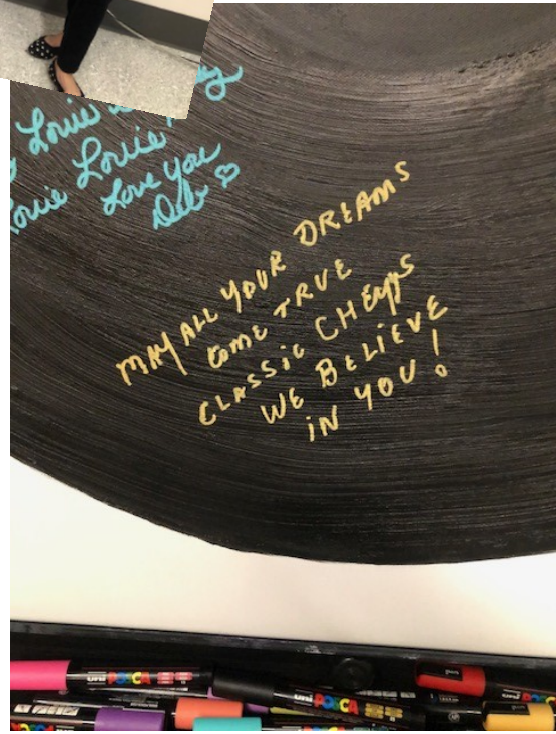 Louie
Louie Louie
Love you
Deb
MAY ALL YOUR DREAMS
COME TRUE
CLASSIC
WE BELIEVE
IN YOU!
uni POSCA
uni POSCA
uni
POSCA